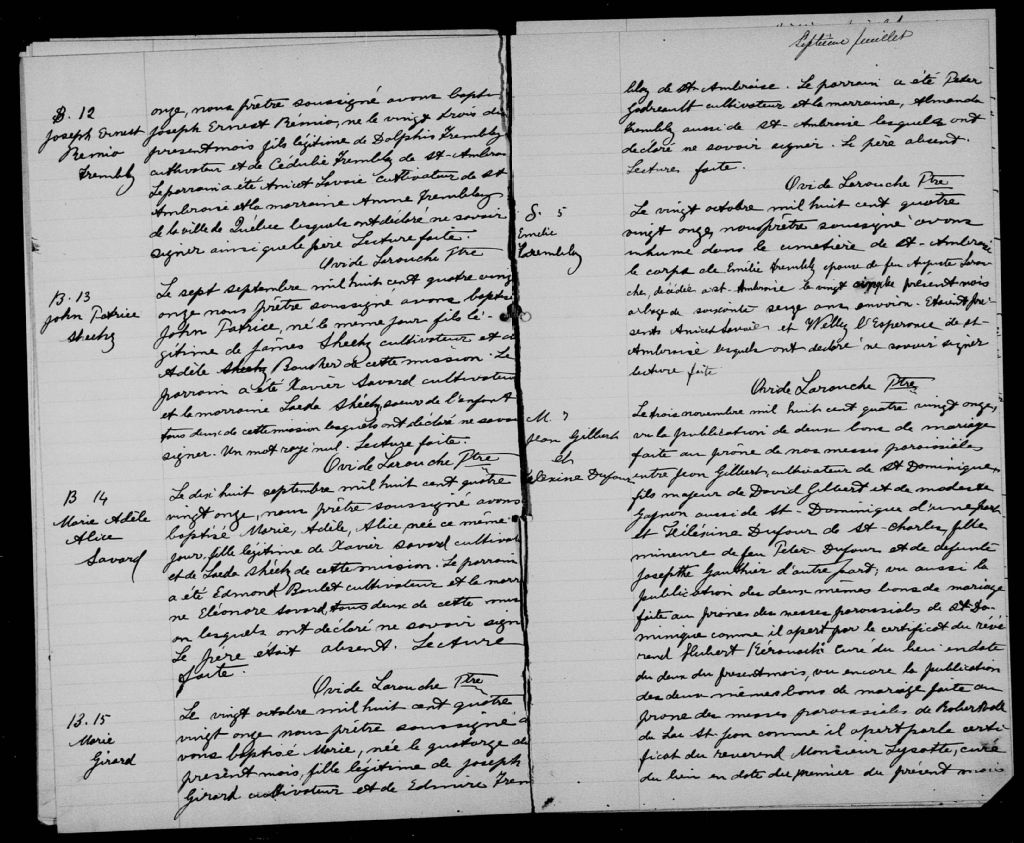 B. 12
Joseph Ernest
Rémio
Trembly
onze, nous prêtre soussigné avons bapti
Joseph Ernest Rémio, né le vingt trois du
present mois fils légitime de Dolphis Trembly
cultivateur et de Cédulie Trembly de St-Ambroi
Le parrain a été Amict Savoie cultivateur de St
Ambroise et la marraine Anne Tremblay
de la ville de Québec lesquels ont déclaré ne savoir
signer ainsi que le père Lecture faite.
Ovide Larouche Ptre
B. 13
John Patrice
Sheehy
Le sept septembre mil huit cent quatre ving
onze nous prêtre soussigné avons baptisé
John Patrice, né le même jour fils lé-
gitime de James Sheehy cultivateur et d
Adèle Sheehy Boucher de cette mission. Le
parrain a été Xavier Savard cultivateur
et la marraine Laeda Sheehy, soeur de l'enfant
tous deux de cette mission lesquels ont déclaré ne savoi
signer. Un mot rayé nul. Lecture faite.
Ovide Larouche Ptre
B 14
Marie Adèle
Alice
Savard
Le dix huit septembre mil huit cent quatre
vingt onze, nous prêtre soussigné avons
baptisé Marie, Adèle, Alice, née ce même
jour, fille légitime de Xavier Savard cultivat
et de Laeda Sheehy de cette mission. Le parrain
a été Edmond Boulet cultivateur et la marr
ne Eléonore Savard, tous deux de cette mis
on lesquels ont déclaré ne savoir sign
Le père était absent. Lecture
faite.
Ovide Larouche Ptre
B. 15
Marie
Girard
Le vingt octobre mil huit cent quatre
vingt onze nous prêtre soussigné a
vons baptisé Marie, née le quatorze de
présent mois, fille légitime de Joseph
Girard cultivateur et de Edmire Trem
Septième feuillet
blay de St-Ambroise. Le parrain a été Peter
Godreault cultivateur et la marraine, Almanda
Trembly aussi de St-Ambroise lesquels ont
déclaré ne savoir signer. Le père absent.
Lecture faite.
Ovide Larouche Ptre
S. 5
Emilie
Trembly
Le vingt octobre mil huit cent quatre
vingt onze, nous prêtre soussigné avons
inhumé dans le cimetière de St-Ambroise
le corps de Emilie Trembly épouse de feu Auguste Larou-
che, décédée à St-Ambroise le vingt du présent mois
a l'age de soixante seize ans environ. Etaient pré
sents Amict Savoie et Willy l'Esperance de St-
Ambroise lesquels ont déclaré ne savoir signer
lecture faite
Ovide Larouche Ptre
M. 7
Jean Gilbert
et
Télexine Dufour
Le trois novembre mil huit cent quatre vingt onze,
vu la publication de deux bans de mariage
faite au prône de nos messes paroissiales
entre Jean Gilbert, cultivateur de St Dominique
fils majeur de David Gilbert et de modeste
Gagnon aussi de St-Dominique d'une part
et Télexine Dufour de St-Charles fille
mineure de feu Peter Dufour et de defunte
Josephte Gauthier d'autre part; vu aussi la
publication des deux mêmes bans de mariage
faite au prônes des messes paroissiales de St-Do-
minique comme il apert par le certificat du révé
rend Hubert Kérouack Curé du lieu en date
du deux du present mois, vu encore la publication
des deux mêmes bans de mariage faite au
prone des messes paroissiales de Roberval
du Lac St-Jean comme il apert par le certi-
ficat du reverend Monsieur Lizotte, curé
du lieu en date du premier du présent mois